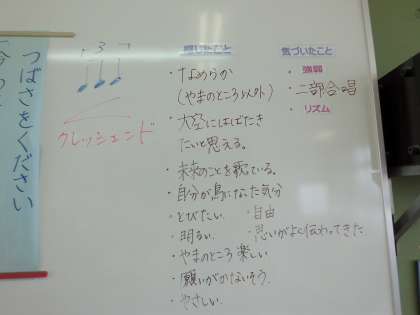 つばさをください
3
クレッシェンド
感じたこと
・なめらか
(やまのところ以外)
・大空にはばたき
たいと思える。
・未来のことを歌ている。
・自分が鳥になった気分
・とびたい ・自由
・明るい ・思いがよく伝わってきた
・やまのところ楽しい
・願いがかないそう。
・やさしい
気づいたこと
・強弱
・二部合唱
・リズム